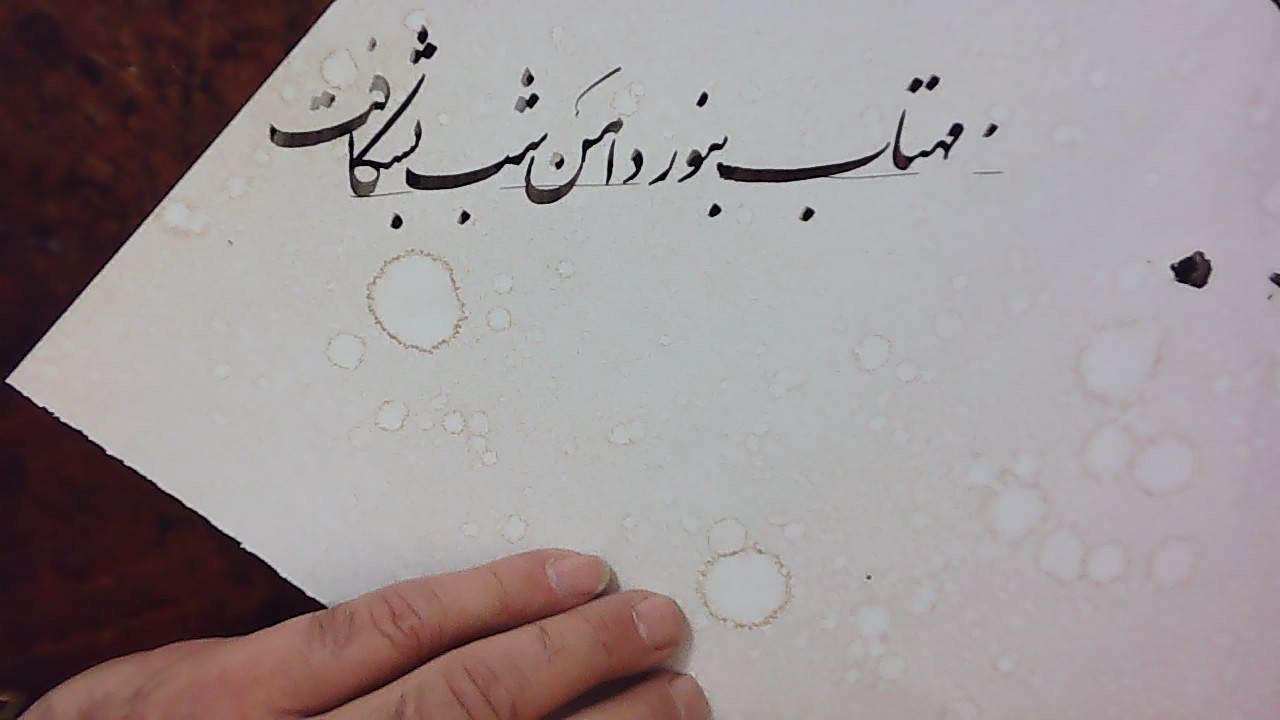 مهتاب بنور دامن شب بشکافت